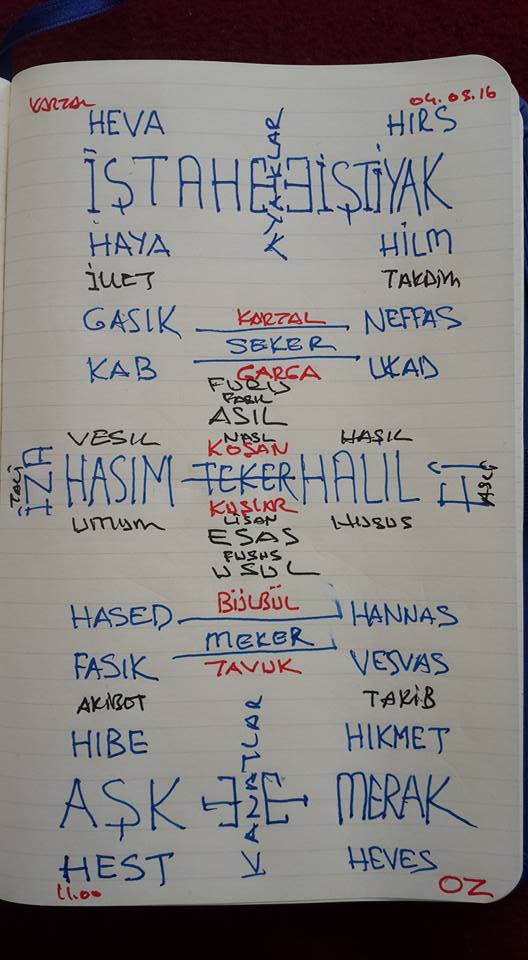 KARTAL 04.03.16
HEVA HIRS
İŞTAHE EİŞTİYAK
AYAKLAR
HAYA HİLM
İLLET TAKDİM
GASIK KARTAL NEFFAS
SEKER
KAB GARGA UKAD
FURU
FASIL
ASIL
VESIL NASL HAŞIL
KOŞAN
İZA HASIM TEKER HALIL
KUŞLAR
UMUM LİSAN HUSUS
ESAS
FUSUS
USUL
HASED BÜLBÜL HANNAS
MEKER
FASIK TAVUK VESVAS
AKİBET TAKİB
HIBE HIKMET
KANATLAR
AŞK MERAK
HEST HEVES
11.00 OZ